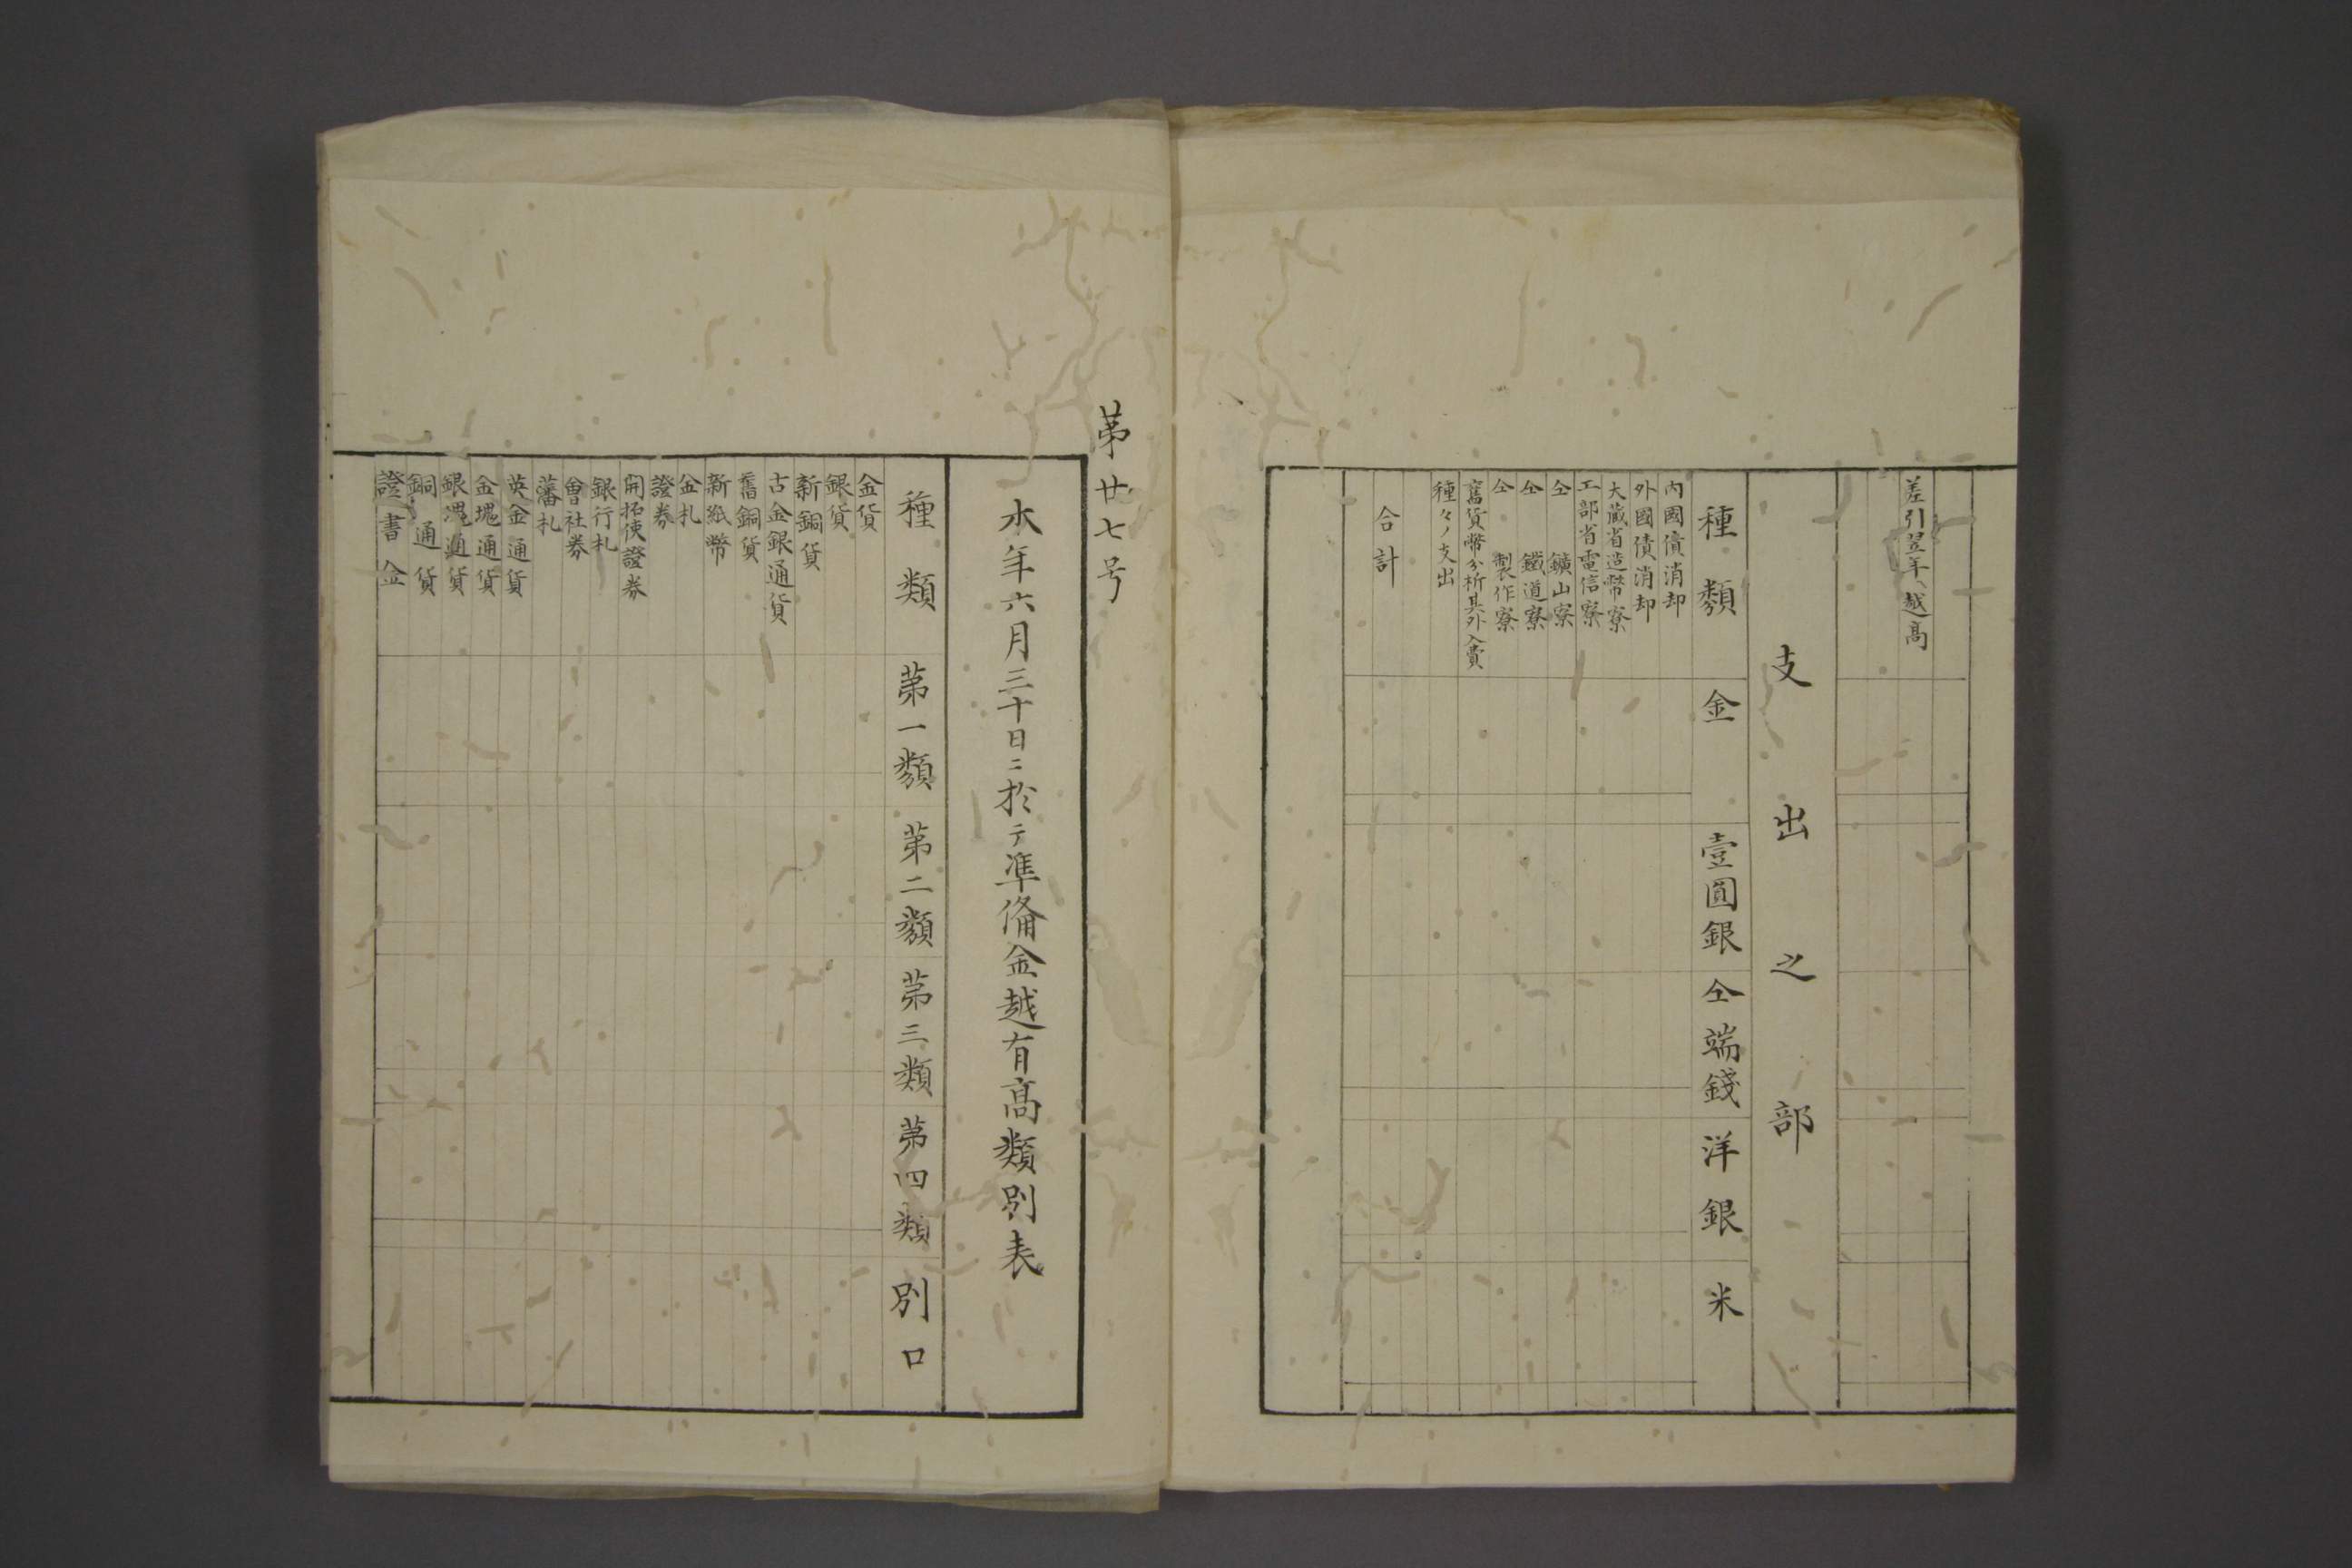 差引翌年ヘ越高
支出之部
種類 金 壹圓銀 仝端錢 洋銀 米
内國債消却
外國債消却
大藏省造幣寮
工部省電信寮
仝 鑛山寮
仝 鐵道寮
仝 製作寮
舊貨幣分析其外入費
種々ノ支出
合計
第廿七号
本年六月三十日ニ於テ準備金越有高類別表
種類 第一類 第二類 第三類 第四類 別口
金貨
銀貨
新銅貨
古金銀通貨
舊銅貨
新紙幣
金札
證券
開拓使證券
銀行札
會社券
藩札
英金通貨
金塊通貨
銀塊通貨
銅通貨
證書金